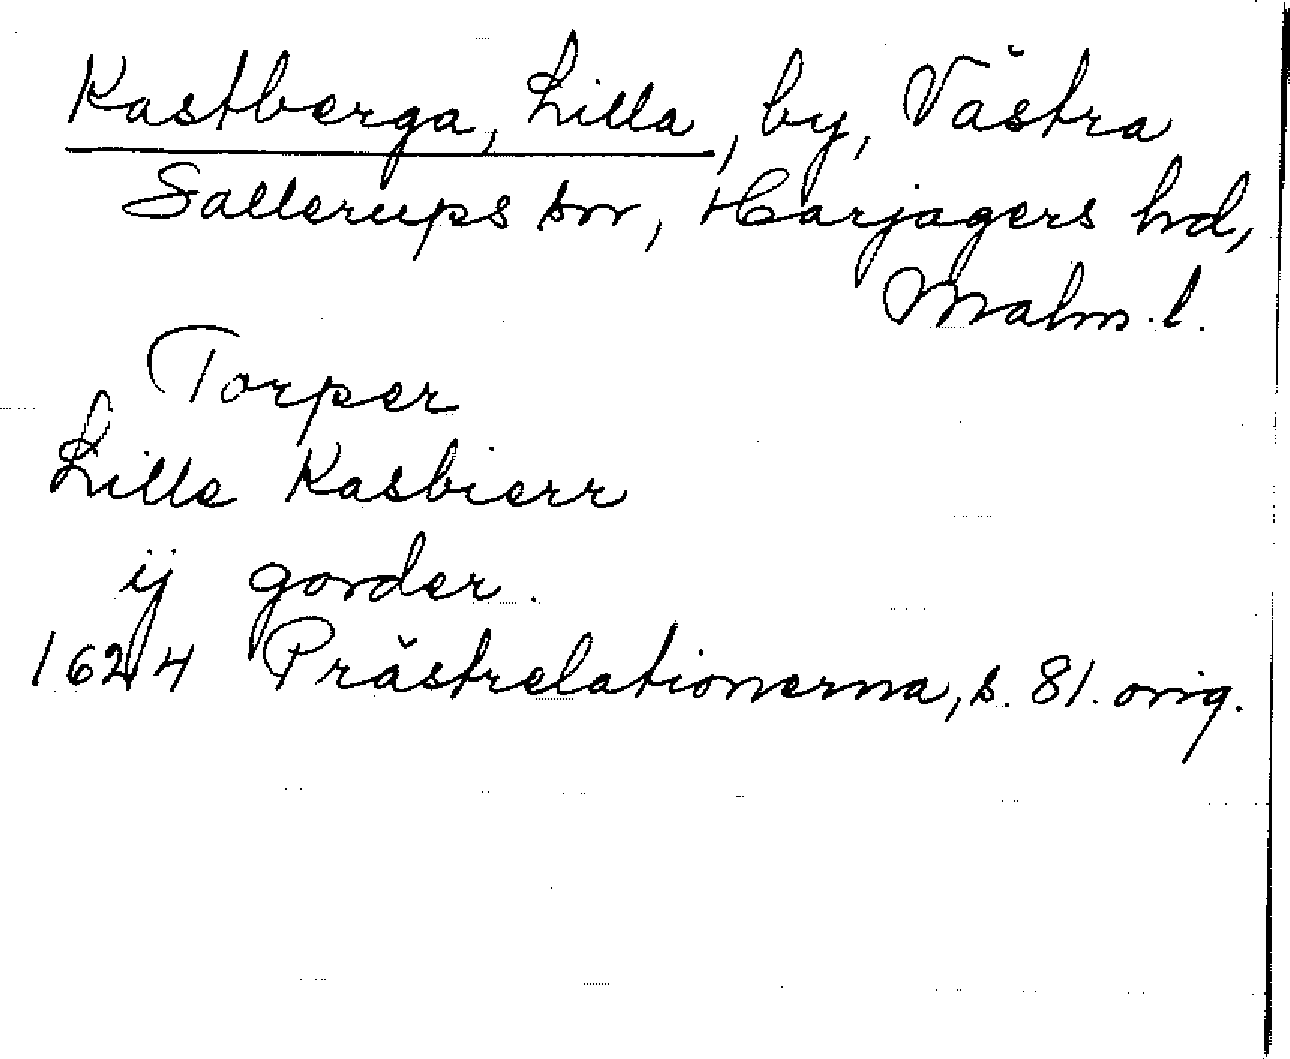 Kastberga, Lilla, by, Västra
Sallerups sn, Harjagers hd,
Malm. l.
Torper
Lille Kasbierr
ij gorder.
1624 Prästrelationerna, s. 81. orig.